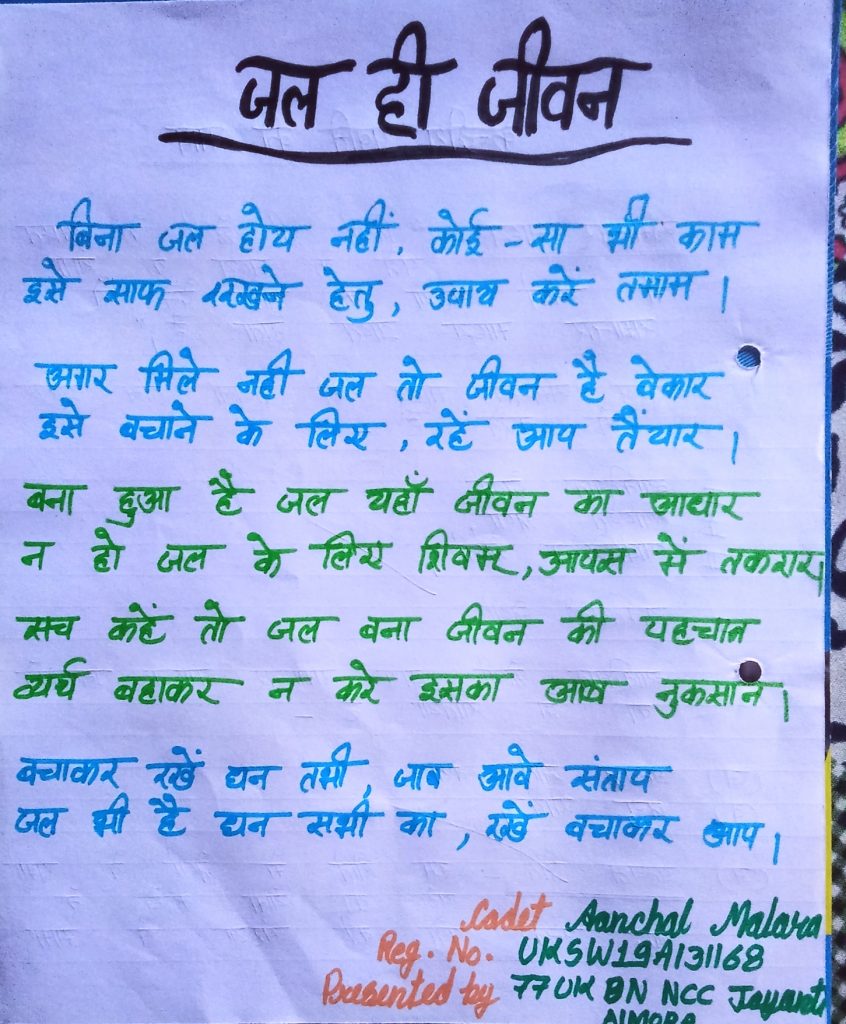 जल ही जीवन
बिना जल होय नहीं, कोई-सा भी काम
इसे साफ रखने हेतु, उपाय करें तमाम।
अगर मिले नही जल तो जीवन है वेकार
इसे वचाने के लिए, रहें आप तैंयार।
बना हुआ है जल यहाँ जीवन का आधार
न हो जल के लिए शिवम, आपस में तकरार।
सच कहें तो जल बना जीवन की पहचान
व्यर्थ बहाकर न करे इसका आप नुकसान।
बचाकर रखें धन तभी, जाव आवे संताप
जल भी है धन सभी का, रखें वचाकर आप।
Cadet Aanchal Malara
Reg. No. UKSW19A131168
Presented by 77 UK BN NCC Jayanti
Almora